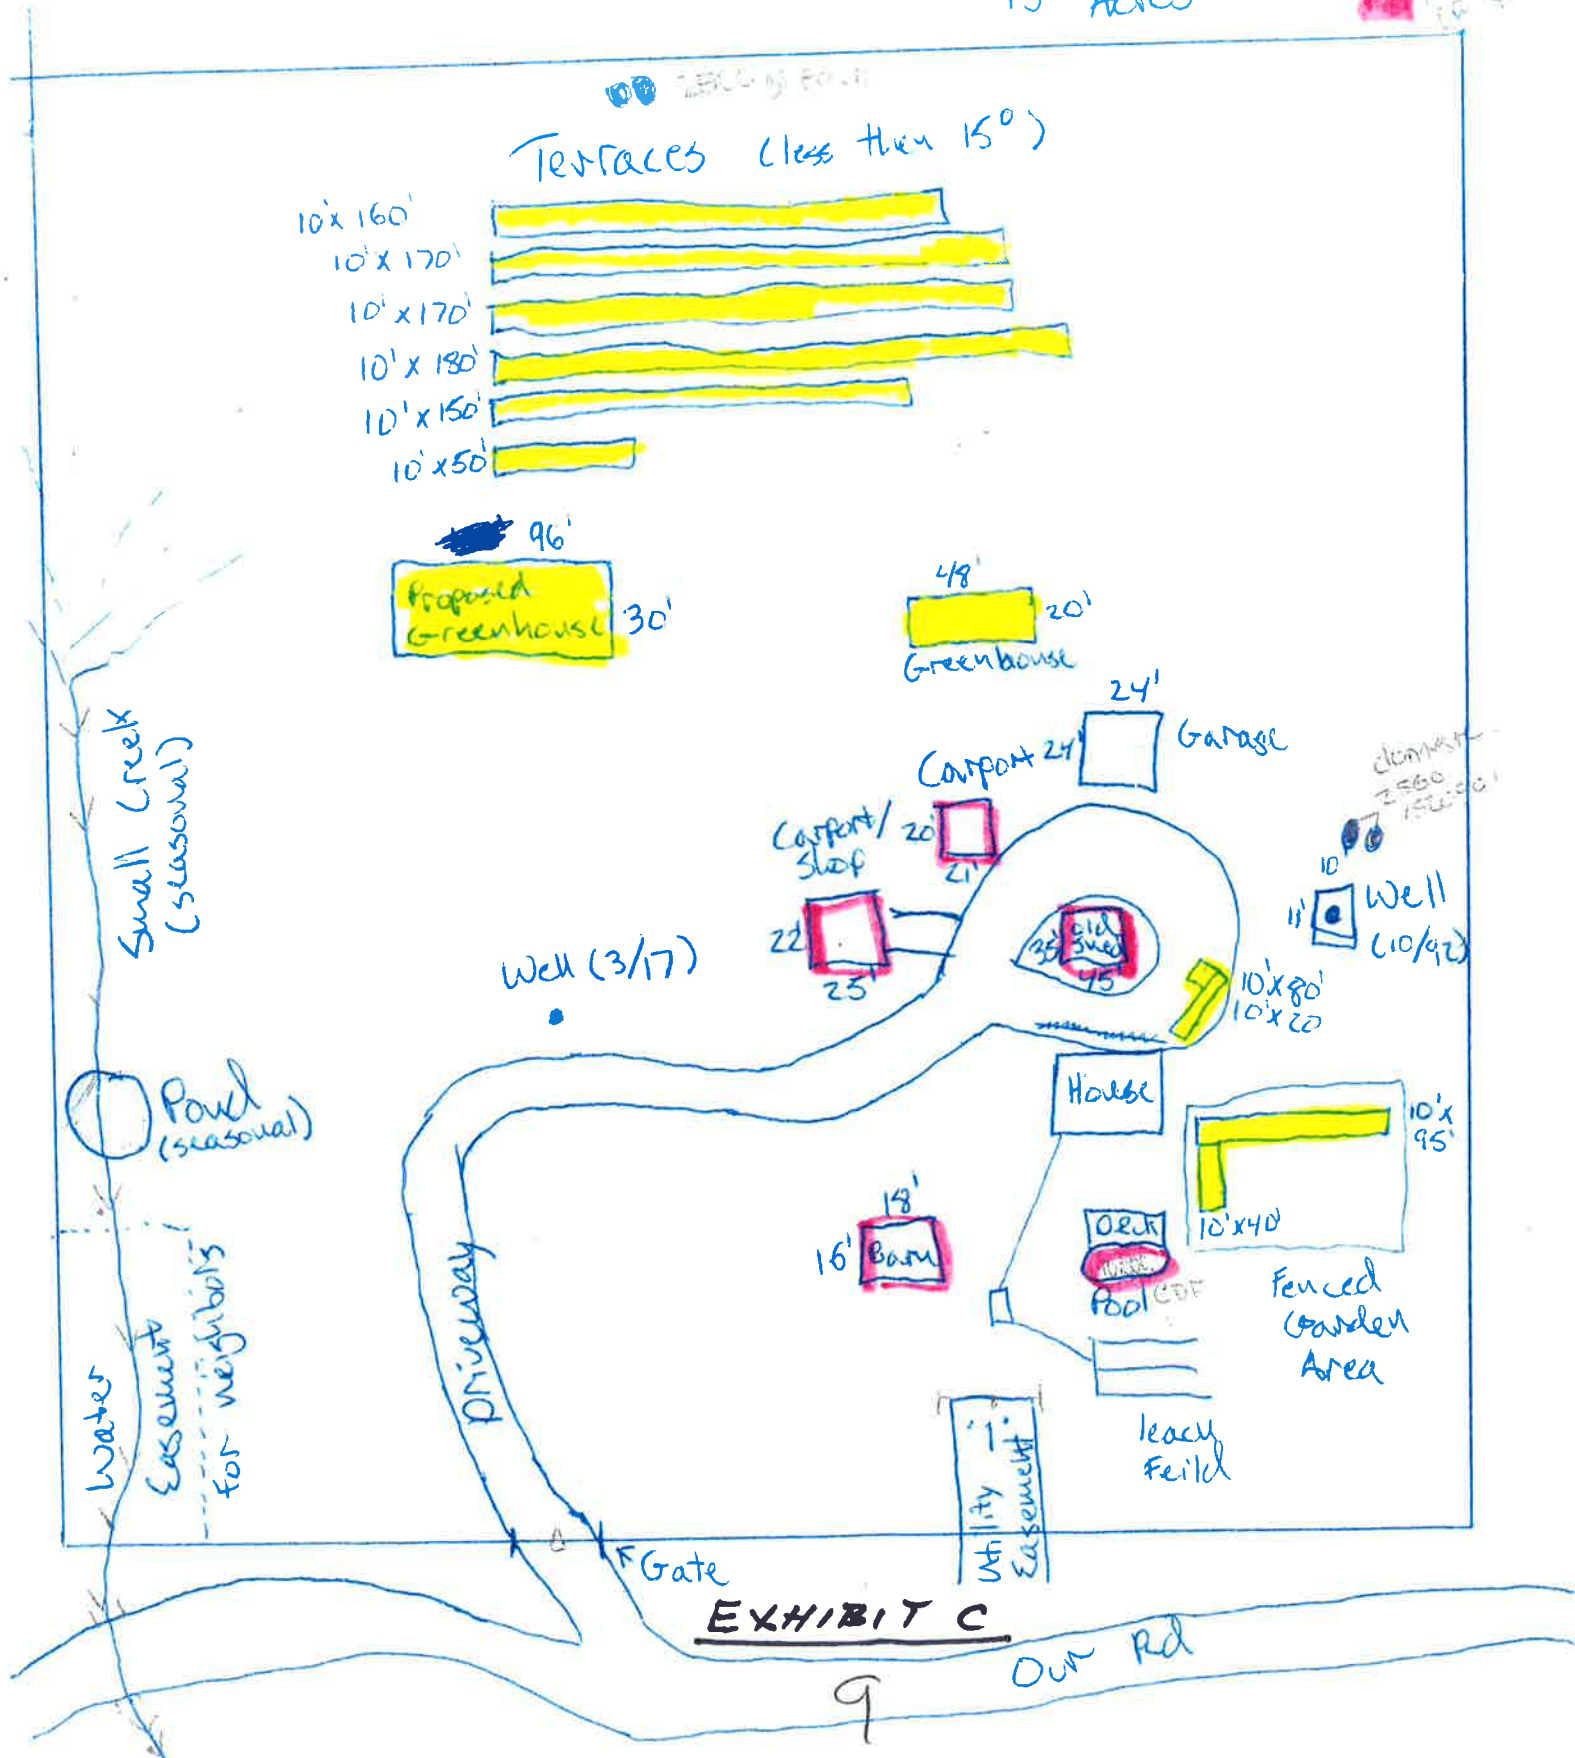 15 Acres
Terraces (less then 15°)
10'x 160'
10'x 170'
10'x170'
10'x 180'
10'x150'
10'x50'
96'
Proposed
Greenhouse
30'
48'
20'
Greenhouse
24'
24'
Garage
Carport
20'
21'
Carport/
Shop
22'
25'
old
shed
35'
45'
domestic
2500
10'
11'
Well
(10/92)
Well (3/17)
10'x80'
10'x20
Small Creek
(seasonal)
Pond
(seasonal)
House
10'x
95'
10'x40'
Fenced
Garden
Area
18'
16'
Barn
Deck
Pool
CDF
leach
Feild
Driveway
Water
Easement
For neighbors
Utility
Easement
Gate
EXHIBIT C
Our Rd
9